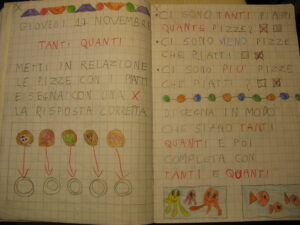 GIOVEDÌ 11 NOVEMBRE
TANTI QUANTI
METTI IN RELAZIONE
LE PIZZE CON I PIATTI
E SEGNA CON UNA X
LA RISPOSTA CORRETTA
CI SONO TANTI PIATTI
QUANTE PIZZE?
CI SONO MENO PIZZE
CHE PIATTI?
CI SONO PIÙ PIZZE
CHE PIATTI?
DISEGNA IN MODO
CHE SIANO TANTI
QUANTI E POI
COMPLETA CON
TANTI E QUANTI